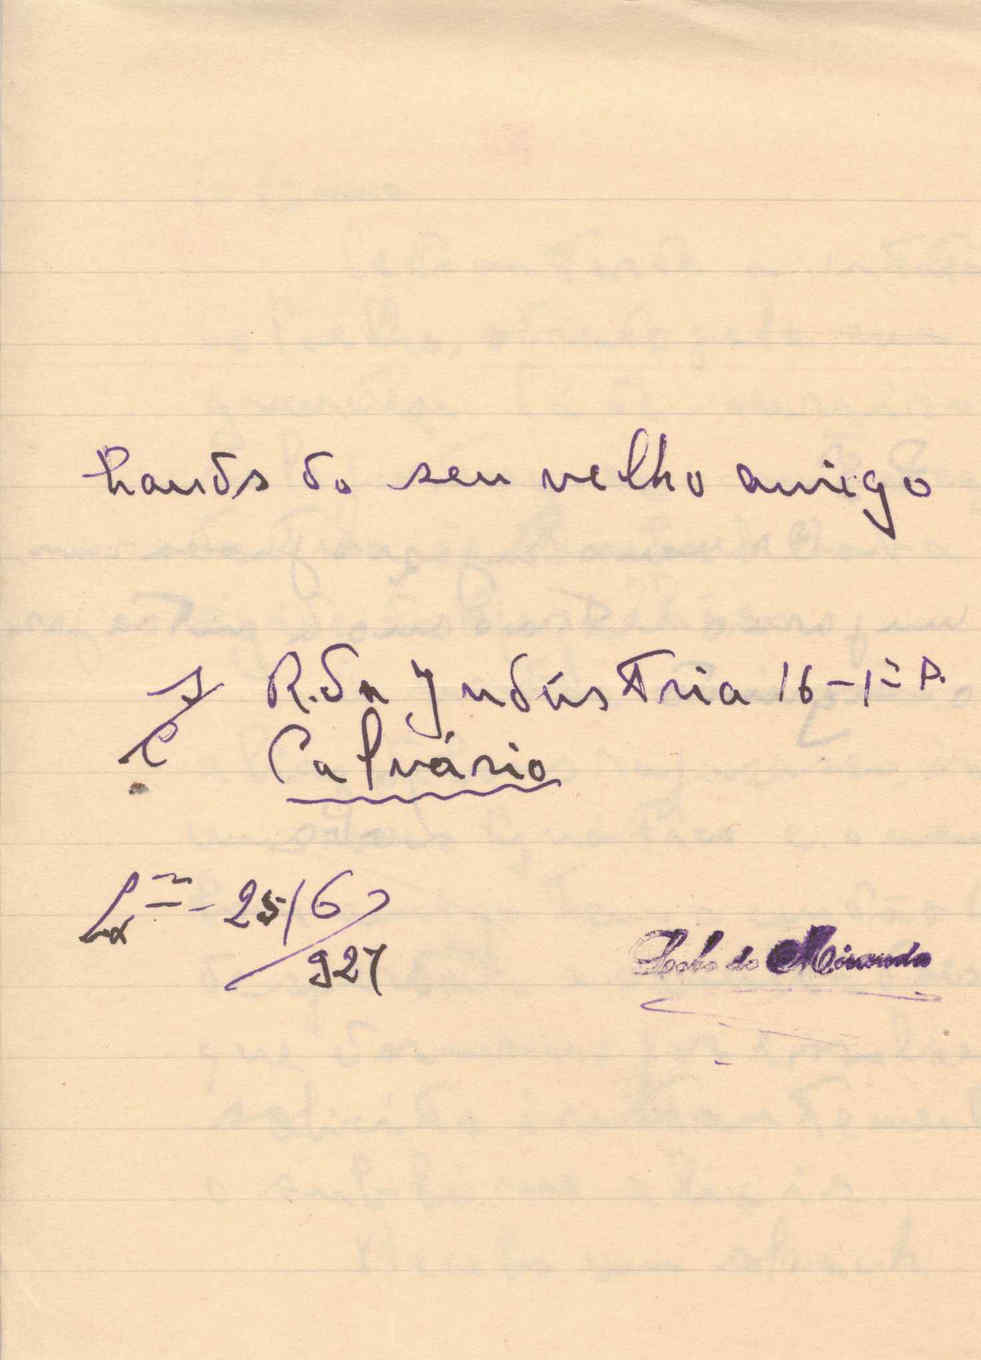 hands do seu velho amigo
S/C R. da Indústria 16-1º D.
Calvário
Lxª - 25/6/927
Lobo de Miranda